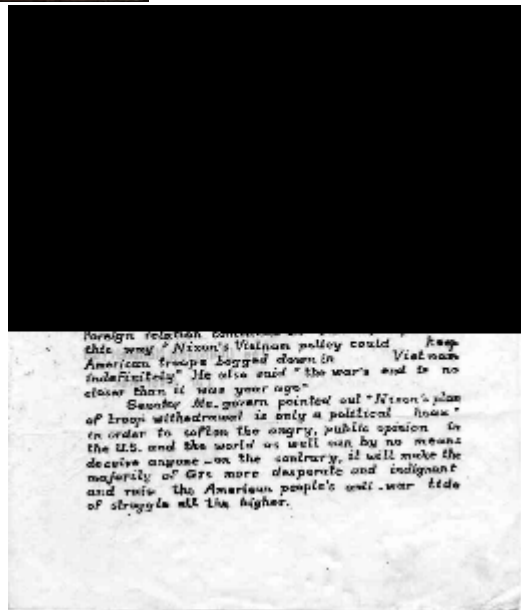 foreign relation
this way "Nixon's Vietnam policy could keep
American troops bogged down in Vietnam
indefinitely" He also said "the war's end is no
closer than it was year ago"
Senator Mc.govern pointed out "Nixon's plan
of troop withdrawal is only a political hoax"
in order to soften the angry, public opinion in
the U.S. and the world as well can by no means
deceive anyone _on the contrary, it will make the
majority of GIs more desperate and indignant
and raise the American people's anti_war tide
of struggle all the higher.